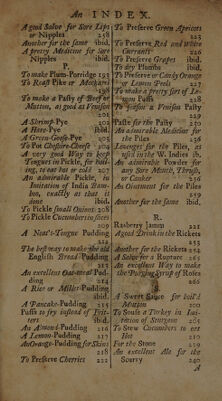 An INDEX.
A good Salve for Sore Lips
or Nipples 258
Another for the same ibid.
A pretty Medicine for sore
Nipples ibid.
P.
To make Plum-Porridge 193
To Roast Pike or Mackarel
198
To make a Pasty of Beef or
Mutton, as good as Venison
201
A Shrimp-Pye 202
A Hare-Pye ibid.
A Green-Goose-Pye 205
To Pot Cheshire-Cheese 204
A very good Way to keep
Tongues in Pickle, for boil-
ing, to eat hot or cold 207
An admirable Pickle, in
Imitation of India Bam-
boe, exactly as that is
done ibid.
To Pickle small Onions 208
To Pickle Cucumbers in slices
209
A Neat's-Tongue Pudding
222
The best way to make the old
English Bread Pudding
An excellent Oat-meal Pud-
ding 214
A Rice or Millet-Pudding
ibid.
A Pancake-Pudding
Puffs to fry instead of Frit-
ters ibid.
An Almond-Pudding 216
A Lemon-Pudding 217
An Orange-Pudding for Skins
218
To Preserve Cherries 222
To Preserve Green Apricots
225
To Preserve Red and White
Currants 226
To Preserve Grapes ibid.
To dry Plumbs ibid.
To Preserve or Candy Orange
or Lemon Peels 227
To make a pretty sort of Le-
mon Puffs 228
To season a Venison Pasty
229
Paste for the Pasty 230
An admirable Medicine for
the Piles 256
Lozenges for the Piles, as
us'd in the W. Indies ib.
An admirable Powder for
any Sore Mouth, Thrush,
or Canker 256
An Ointment for the Piles
259
Another for the same ibid.
R.
Rasberry Jamm 221
A good Drink in the Rickets
253
Another for the Rickets 254
A Salve for a Rupture 265
An excellent Way to make
the Purging Syrup of Roses
266
S.
A Sweet Sauce for boil'd
Mutton 200
To Souse a Turkey in Imi-
tation of Sturgeon 205
To Stew Cucumbers to eat
Hot 210
For the Stone 239
An excellent Ale for the
Scurvy 240
A